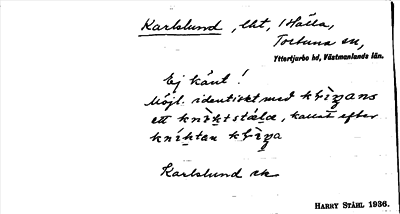 Karlslund, lht, i Hälla,
Tortuna sn,
Yttertjurbo hd, Västmanlands län.
Ej känt!
Möjl. identiskt med
ett ställe, kallat efter
Karlslund ek
HARRY STÅHL 1936.